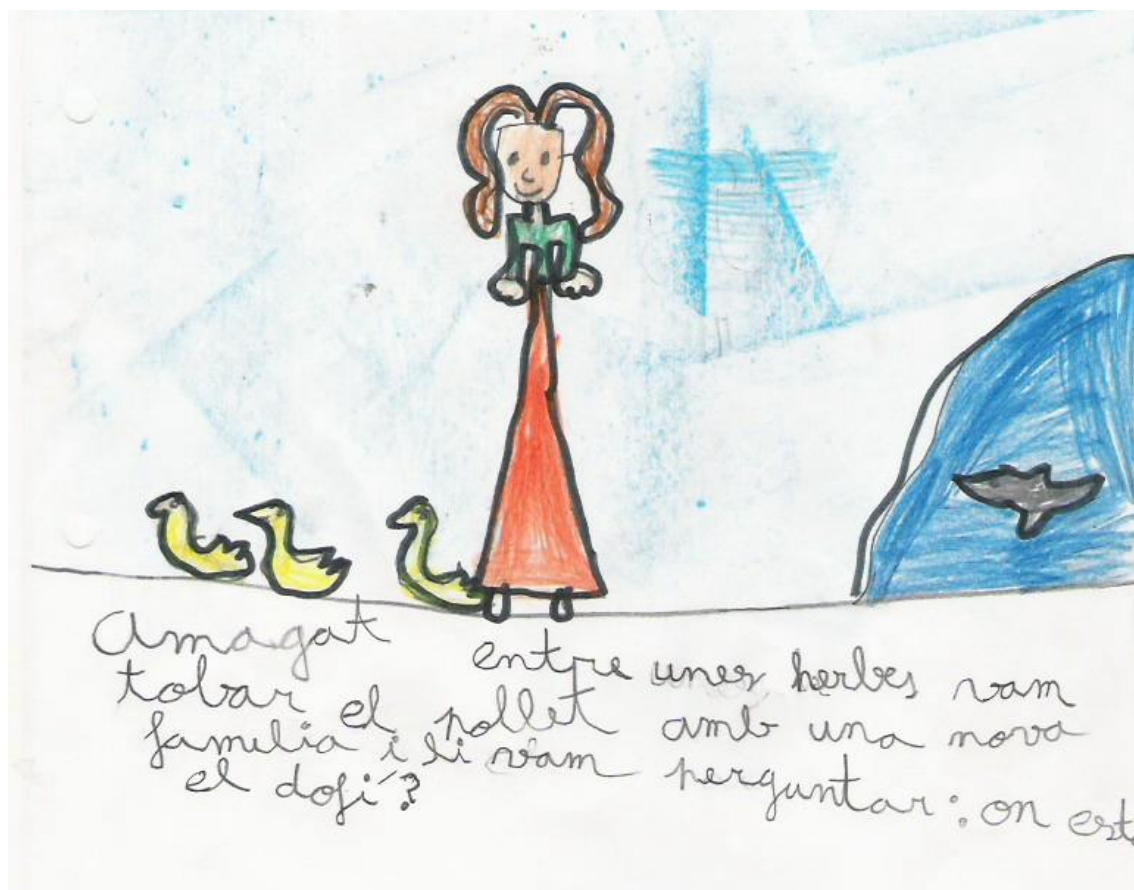 Amagat entre unes herbes vam
tobar el pollet amb una nova
familia i li vam perguntar: on est
el dofí?